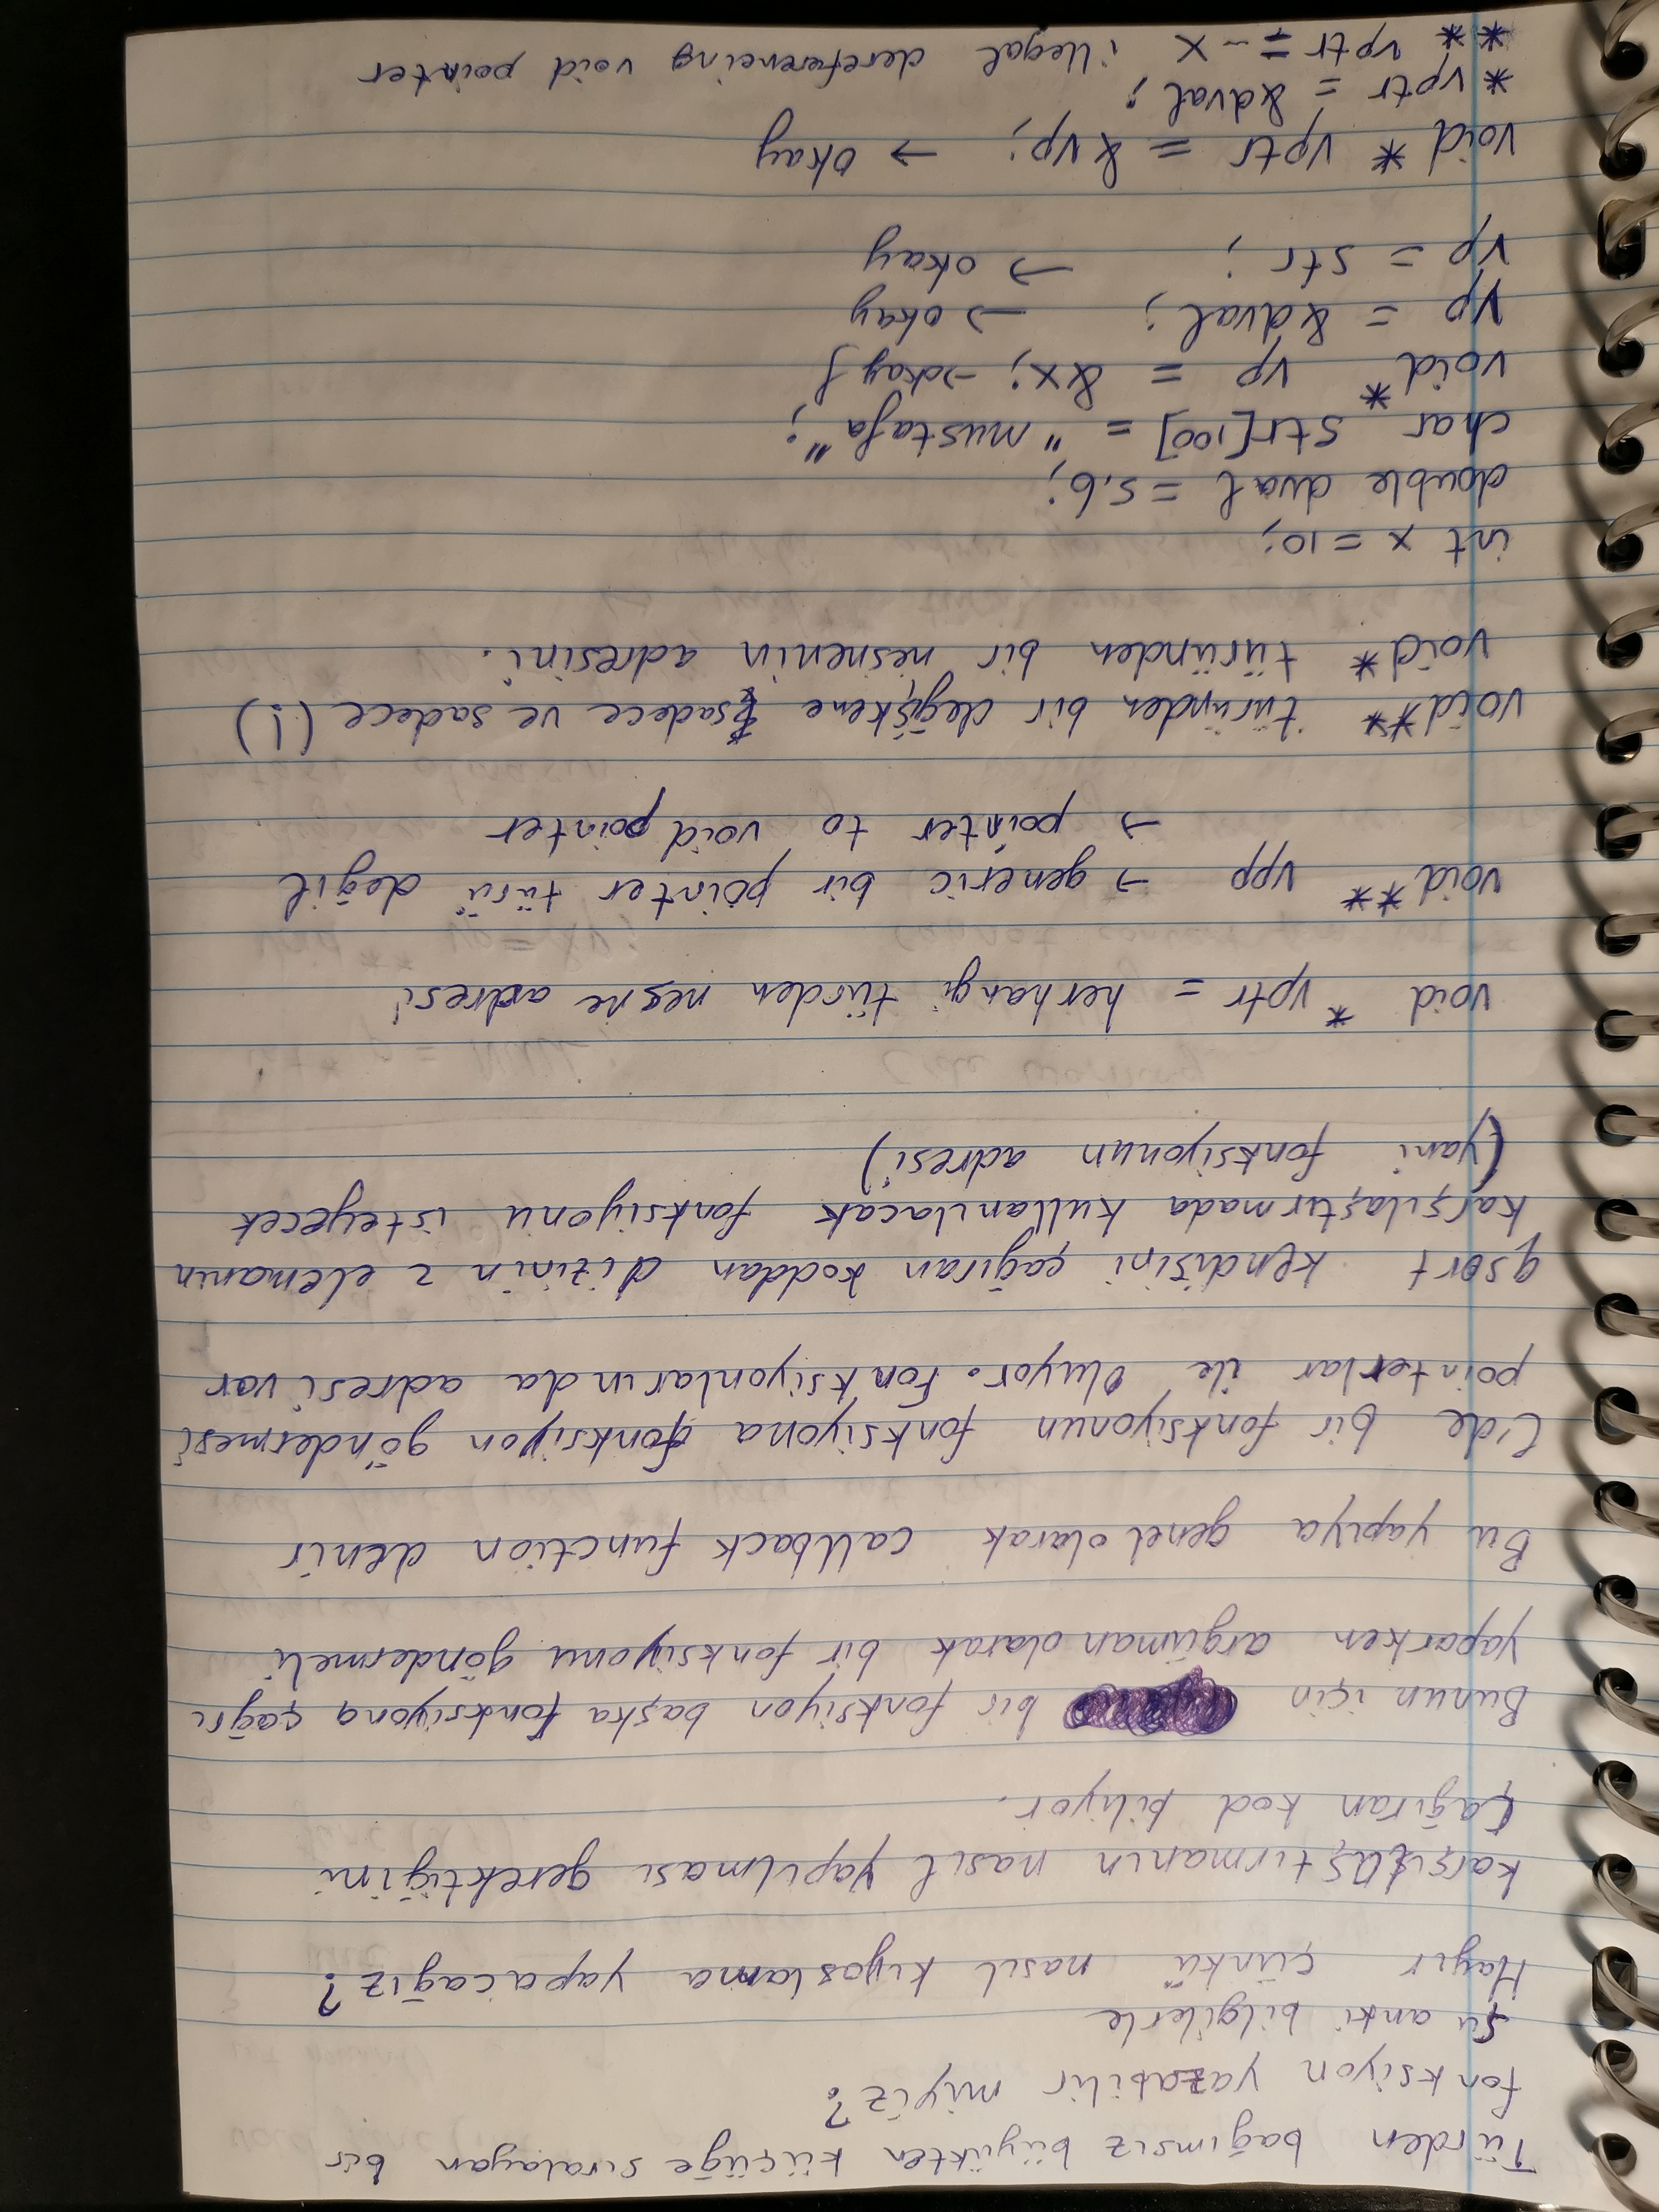 Türden bağımsız büyükten küçüğe sıralayan bir
fonksiyon yazabilir miyiz?
Şu anki bilgilerle
Hayır çünkü nasıl kıyaslama yapacağız?
karşılaştırmanın nasıl yapılması gerektiğini
Çağıran kod biliyor.
Bunun için bir fonksiyon başka fonksiyona çağrı
yaparken argüman olarak bir fonksiyonu göndermeli
Bu yapıya genel olarak callback function denir
C'de bir fonksiyonun fonksiyona fonksiyon göndermesi
pointerlar ile oluyor. Fonksiyonlarında adresi var
qsort kendisini çağıran koddan dizinin 2 elemanın
karşılaştırmada kullanılacak fonksiyonu isteyecek
(yani fonksiyonun adresi)
void * vptr = herhangi türden nesne adresi
void** vpp → generic bir pointer türü değil
→ pointer to void pointer
void** türünden bir değişkene sadece ve sadece (!)
void* türünden bir nesnenin adresini.
int x = 10;
double dval = 5.6;
char str[100] = "mustafa";
void* vp = &x; → okay
vp = &dval; → okay
vp = str; → okay
void * vptr = &vp; → okay
* vptr = &dval;
** vptr = - x illegal dereferencing void pointer